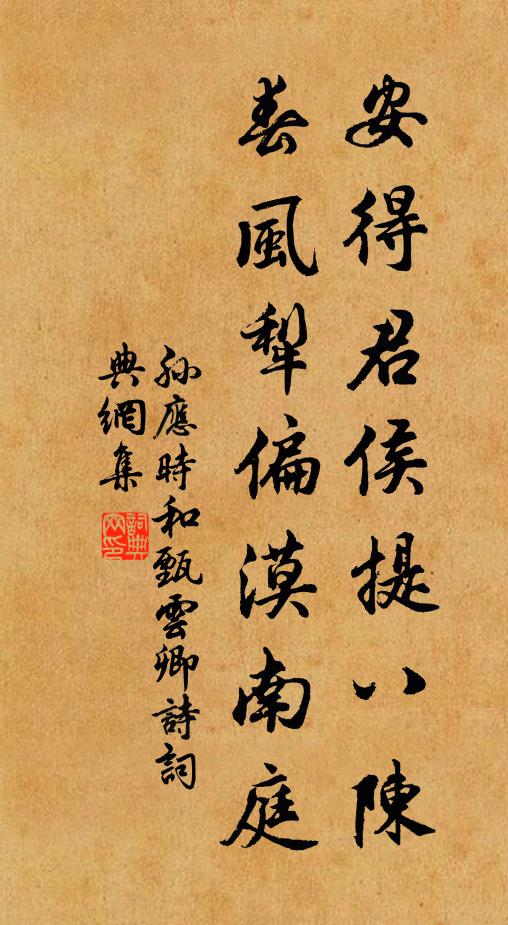 安得君侯提八陳
春風犁偏漠南庭
孫應時和甄雲卿詩詞
典網集
詞典
网印